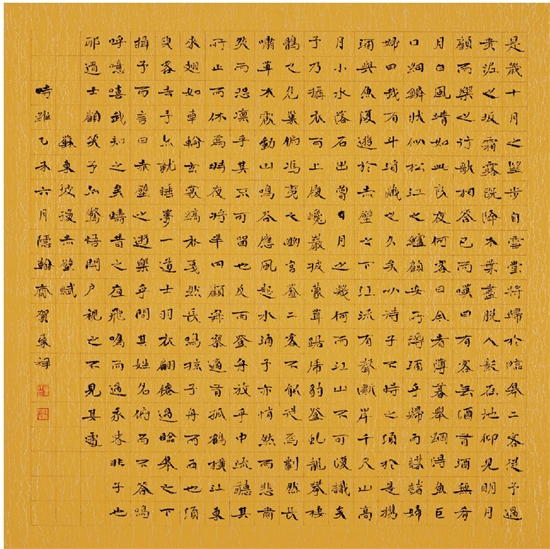 是歲十月之望步自雪堂將歸於臨皋二客從予過
黃泥之坂霜露既降木葉盡脫人影在地仰見明月
顧而樂之行歌相答已而嘆曰有客無酒有酒無肴
月白風清如此良夜何客曰今者薄暮舉網得魚巨
口細鱗狀似松江之鱸顧安所得酒乎歸而謀諸婦
婦曰我有斗酒藏之久矣以待子不時之須於是攜
酒與魚復遊於赤壁之下江流有聲斷岸千尺山高
月小水落石出曾日月之幾何而江山不可復識矣
予乃攝衣而上履巉巖披蒙茸踞虎豹登虬龍攀棲
鶻之危巢俯馮夷之幽宮蓋二客不能從焉劃然長
嘯草木震動山鳴谷應風起水涌予亦悄然而悲肅
然而恐凜乎其不可留也反而登舟放乎中流聽其
所止而休焉時夜將半四顧寂寥適有孤鶴橫江東
來翅如車輪玄裳縞衣戛然長鳴掠予舟而西也須
臾客去予亦就睡夢一道士羽衣翩僊過臨皋之下
揖予而言曰赤壁之遊樂乎問其姓名俯而不答嗚
呼噫嘻我知之矣疇昔之夜飛鳴而過我者非子也
耶道士顧笑予亦驚悟開戶視之不見其處
蘇東坡後赤壁賦
時維乙未六月翰齋賀家